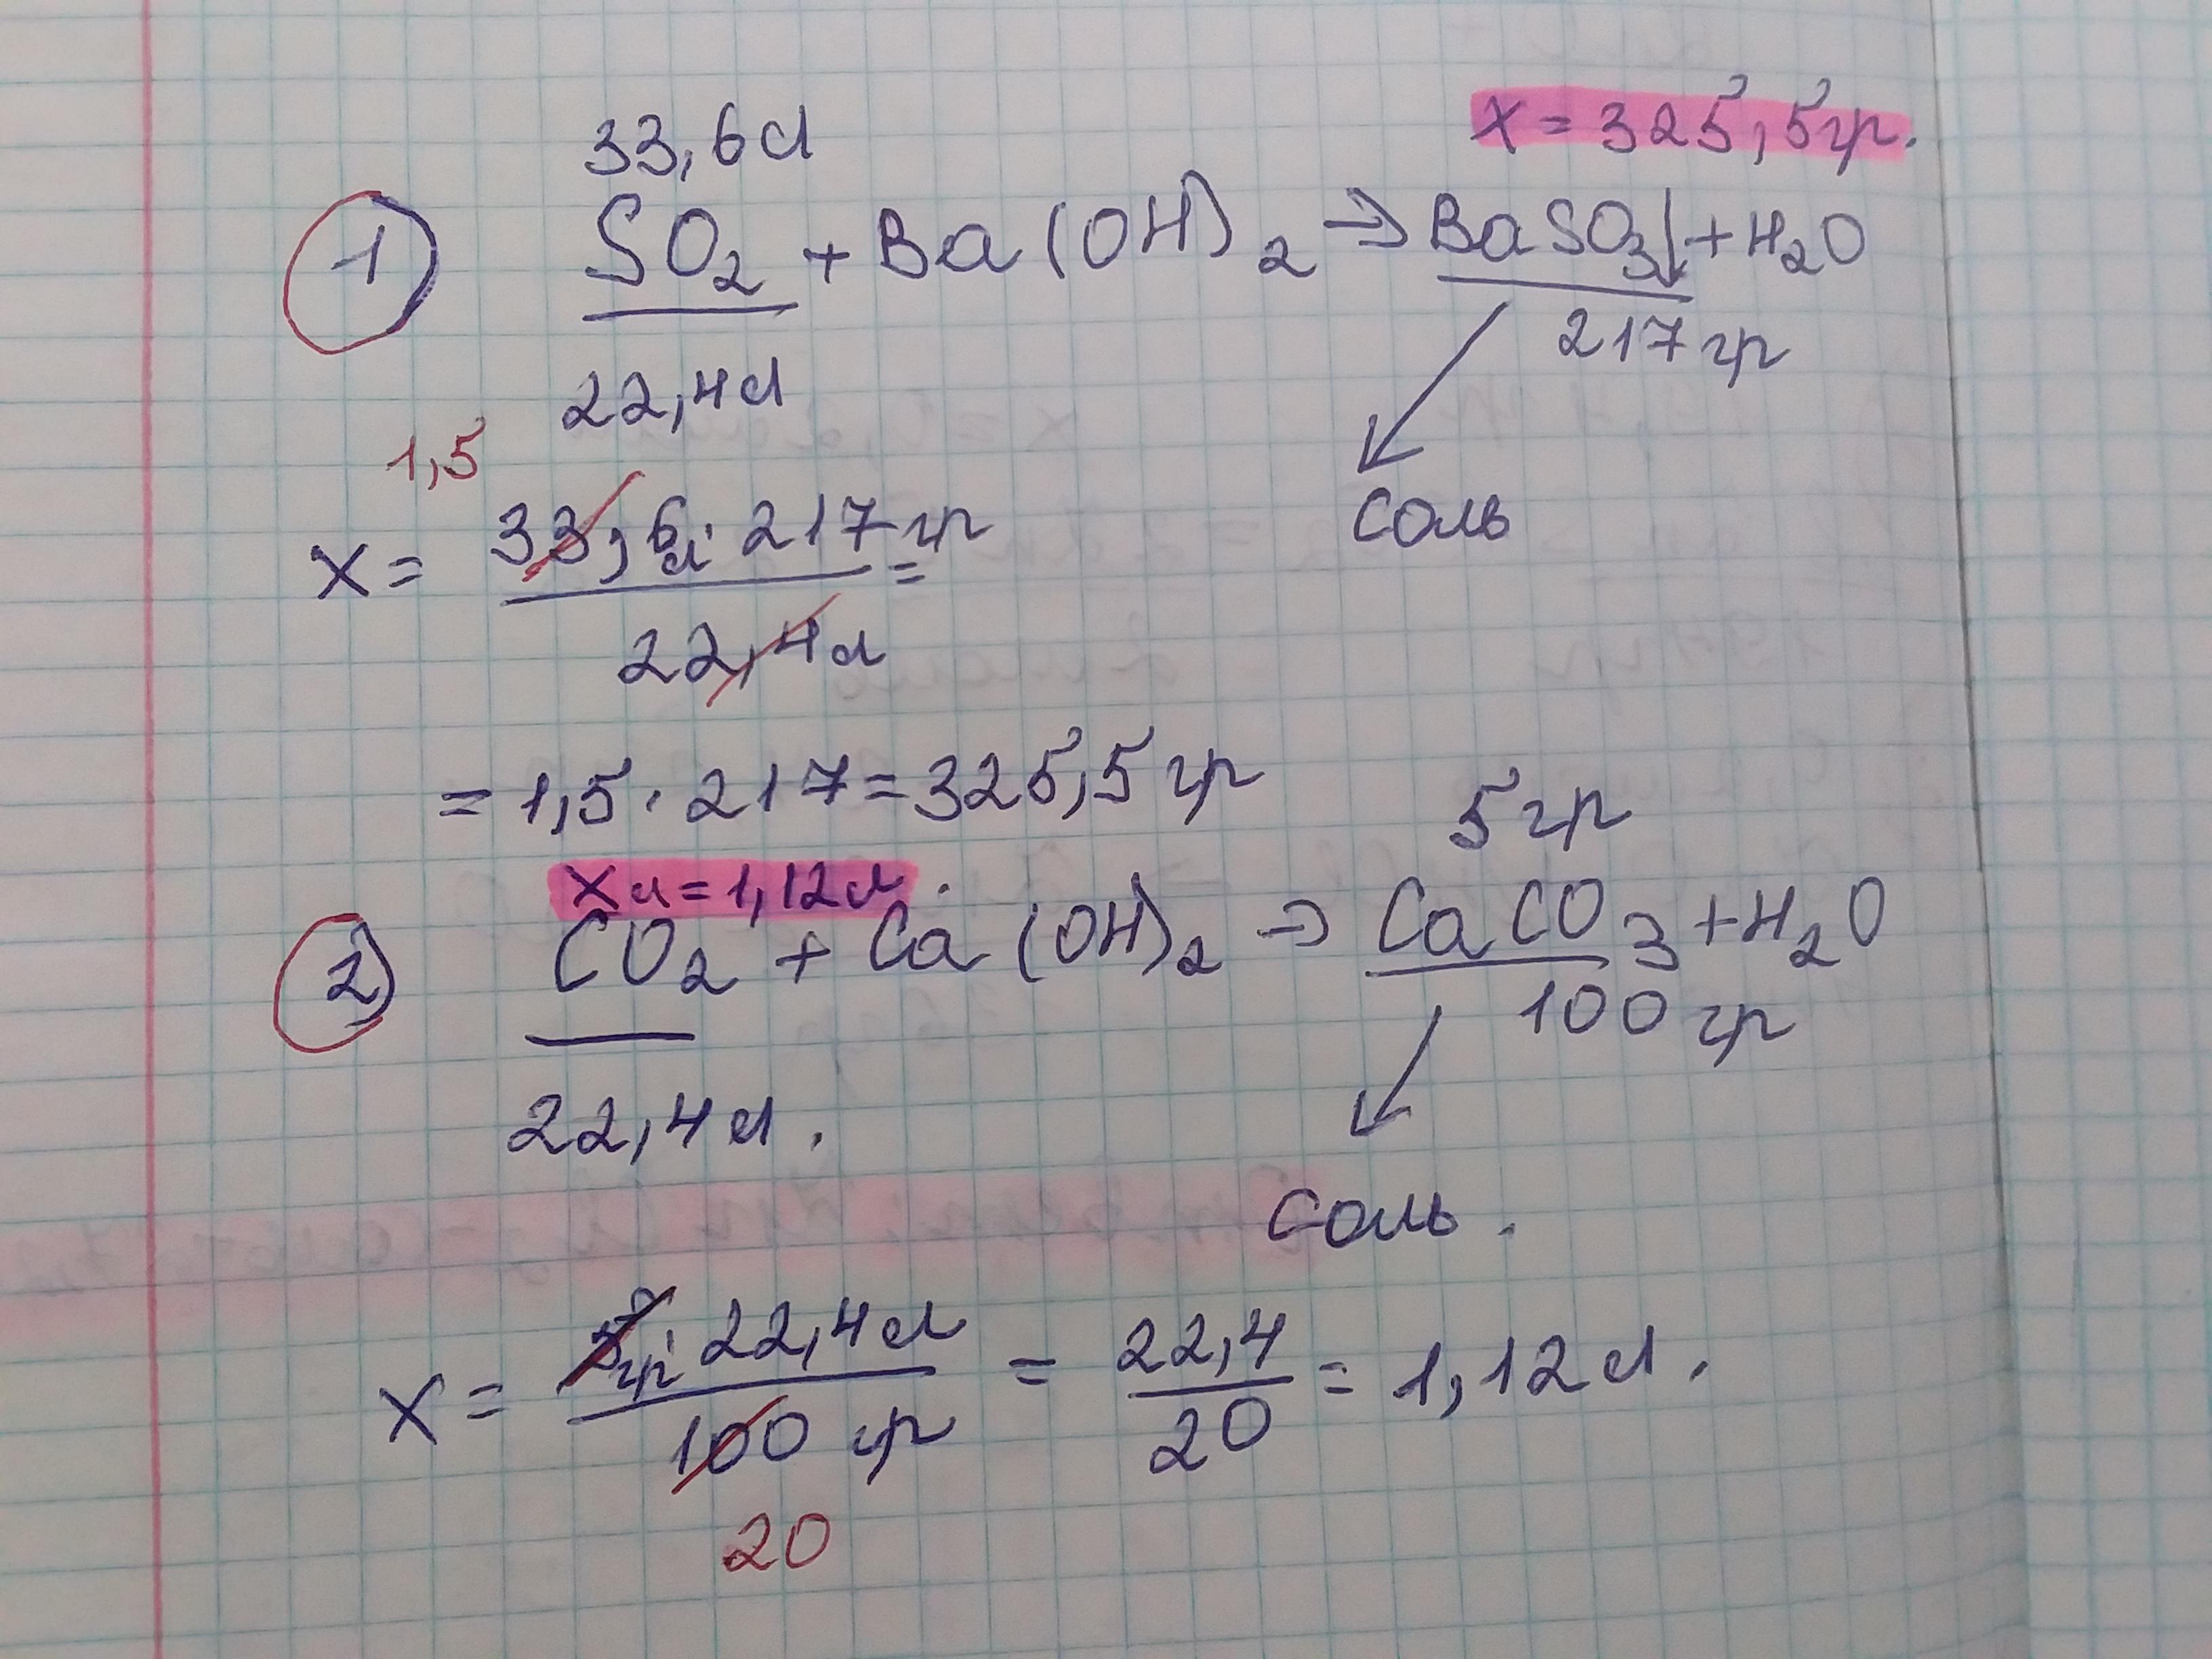 33,6л
x = 325,5гр.
1 SO2 + Ba(OH)2 → BaSO3↓ + H2O
22,4л
217гр
1,5
соль
x = 33,6л · 217гр / 22,4л =
= 1,5 · 217 = 325,5гр
5гр
xл = 1,12л.
2 CO2 + Ca(OH)2 → CaCO3 + H2O
100гр
22,4л.
соль.
x = 5гр · 22,4л / 100 гр = 22,4 / 20 = 1,12л.
20